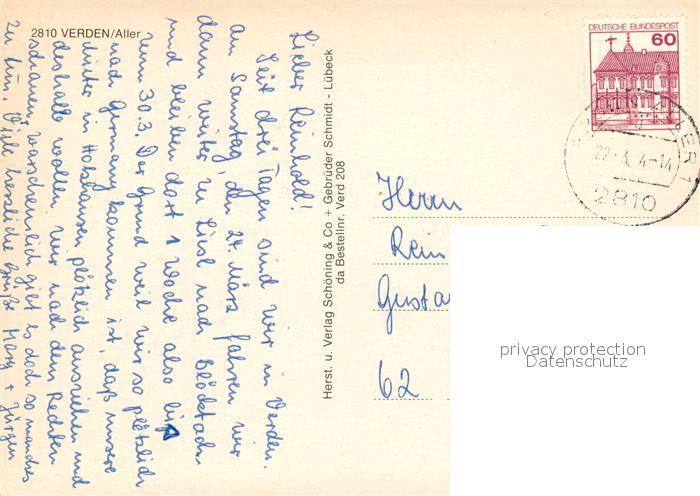 2810 VERDEN/Aller
Lieber Reinhold!
Seit drei Tagen sind wir in Verden.
Am Samstag, den 24. März fahren wir
dann weiter zu Liesl nach
und bleiben dort 1 Woche also bis
zum 30.3. Der Grund weil wir so plötzlich
nach Germany kommen ist, daß unsere
in Holzhausen plötzlich ausziehen und
deshalb wollen wir nach dem Rechten
schauen, warscheinlich gibt es doch so manches
zu tun. Viele herzliche Grüße Mary + Jürgen
Herst. u. Verlag Schöning & Co + Gebrüder Schmidt - Lübeck
da Bestellnr. Verd 208
DEUTSCHE BUNDESPOST
60
22.3. 4-14
2810
Herrn
Rein
Gusta
62
privacy protection
Datenschutz